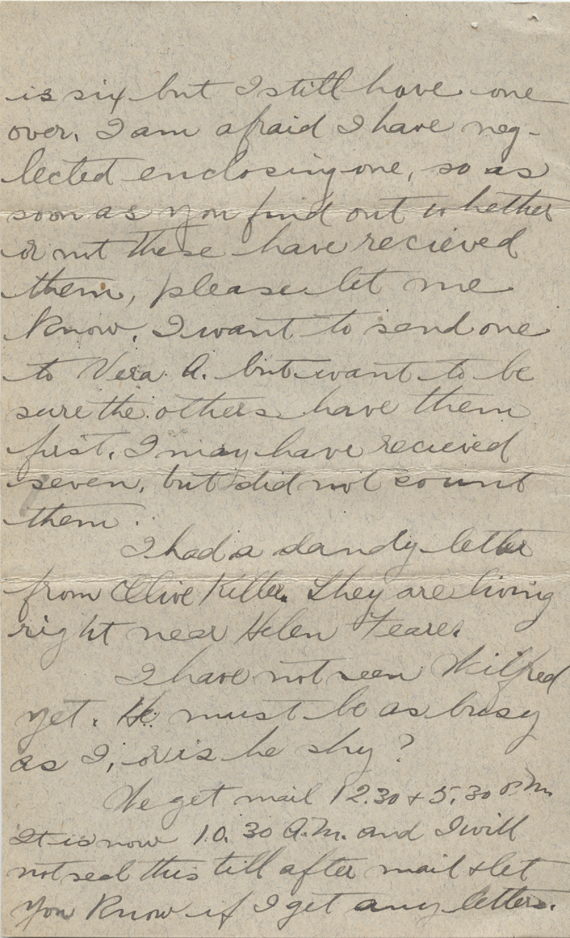 is six but I still have one
over. I am afraid I have neg-
lected enclosing one, so as
soon as you find out whether
or not these have recieved
them, please let me
know. I want to send one
to Vera A. but want to be
sure the others have them
first. I may have recieved
seven, but did not count
them.
I had a dandy letter
from Olive Killer. They are living
right near Helen
I have not seen Wilfred
yet. He must be as busy
as I, or is he shy?
We get mail 12.30 + 5.30 P.M.
It is now 10.30 A.M. and I will
not seal this till after mail + let
you know if I get any letters.